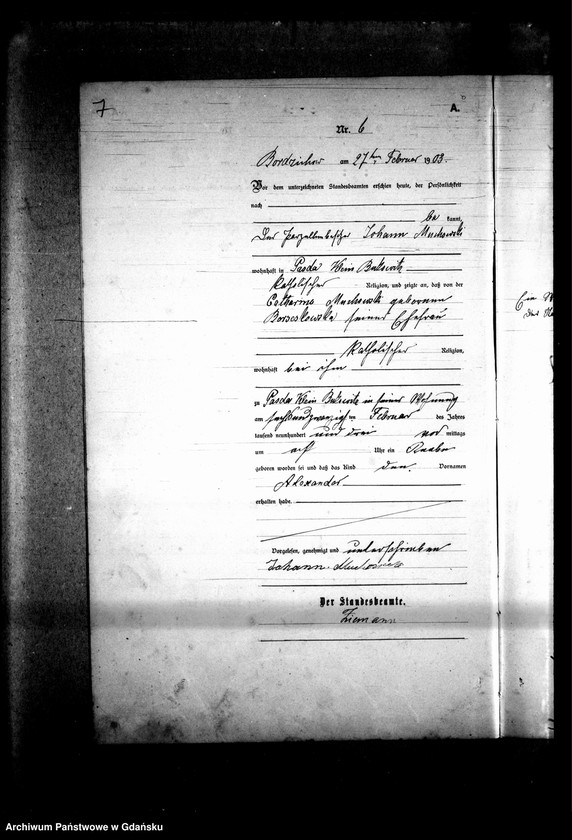 7
A.
Nr. 6
Bordzichow am 27ten Februar 1903.
Vor dem unterzeichneten Standesbeamten erschien heute, der Persönlichkeit
nach
be kannt,
Der Johann Muchowski
wohnhaft in Pasda Klein
katholischer Religion, und zeigte an, daß von der
Catharina Muchowski geborenen
seiner Ehefrau
katholischer Religion,
wohnhaft bei ihm
zu Pasda Klein in seiner Wohnung
am sechsundzwanzigten Februar des Jahres
tausend neunhundert und drei vor mittags
um Uhr ein Knabe
geboren worden sei und daß das Kind den Vornamen
Alexander
erhalten habe.
Vorgelesen, genehmigt und unterschrieben
Johann
Der Standesbeamte.
Ziemann
Archiwum Państwowe w Gdańsku